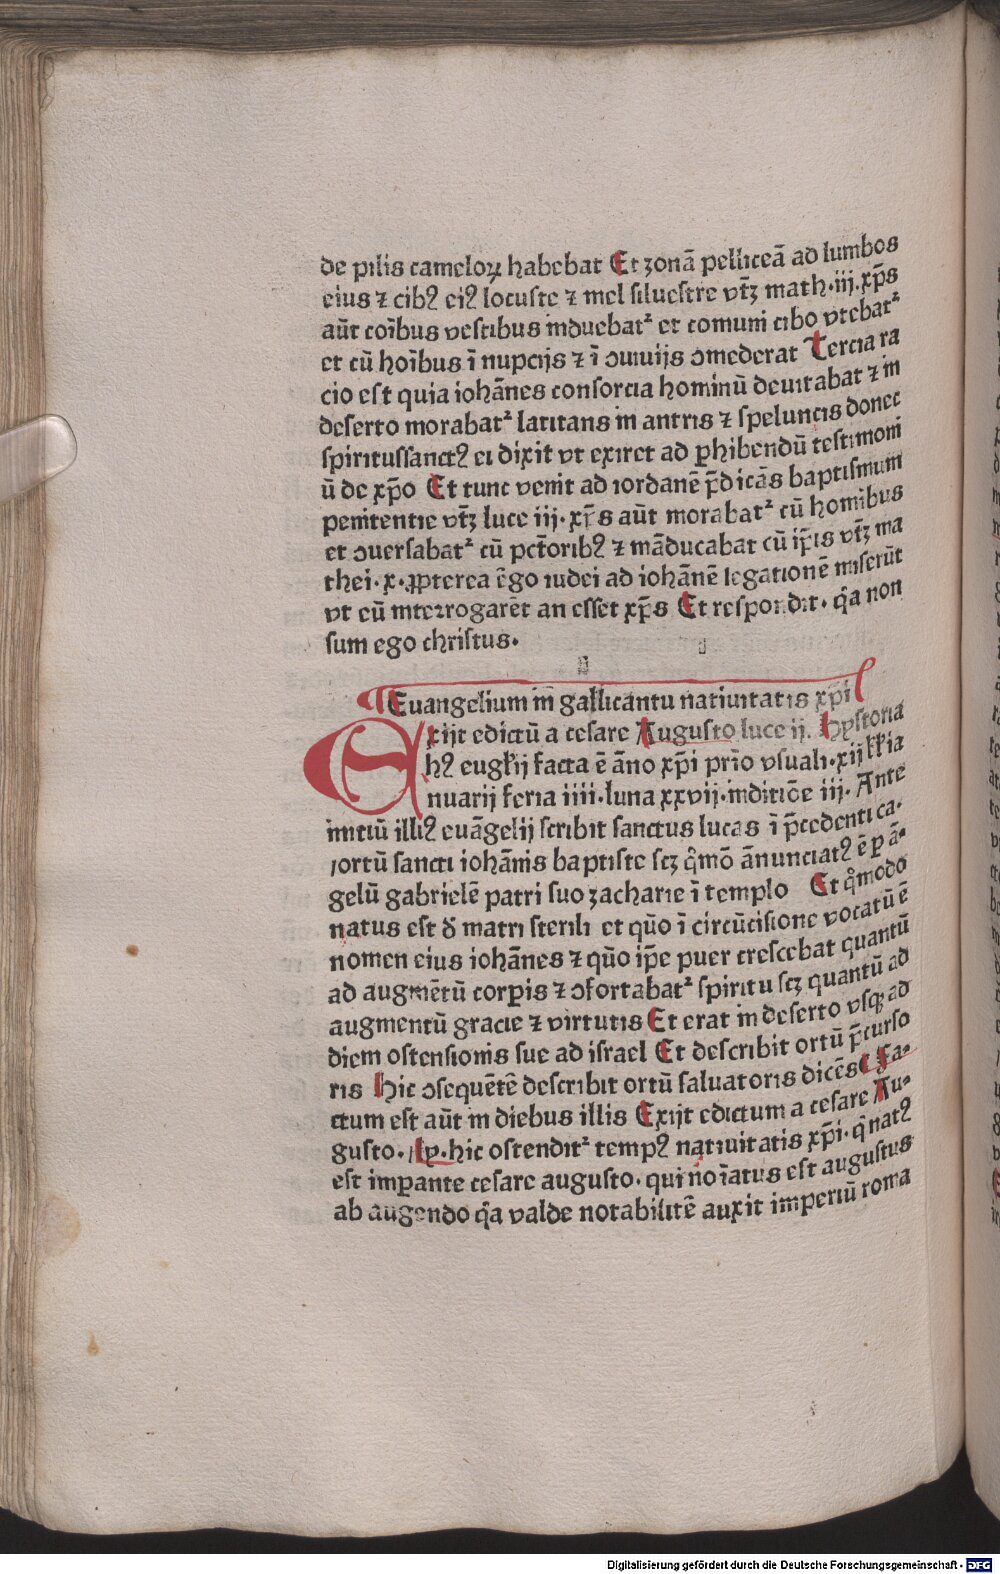 de pilis cameloꝝ habebat Et zonā pelliceā ad lumbos
eius ⁊ cibꝰ eiꝰ locuste ⁊ mel siluestre vtꝫ math·iij.xp̄s
aūt coībus vestibus induebatᷣ et comuni cibo vtebatᷣ
et cū hoībus ī nupcijs ⁊ ī ꝯuiuijs ꝯmederat Tercia ra
cio est quia iohānes consorcia hominū deuitabat ⁊ in
deserto morabatᷣ latitans in antris ⁊ speluncis donec
spiritussanctꝰ ei dixit vt exiret ad ꝑhibendū testimoni
ū de xp̄o Et tunc venit ad iordanē p̄dicās baptismum
penitentie vtꝫ luce iij·xp̄s aūt morabatᷣ cū hominibus
et ꝯuersabatᷣ cū pctōribꝰ ⁊ māducabat cū ip̄is vtꝫ ma
thei·x·ꝓpterea ergo iudei ad iohānē legationē miserūt
vt eū interrogarēt an esset xp̄s Et respondit· q̄a non
sum ego christus·
¶Euangelium in gallicantu natiuitatis xp̄i
Exijt edictū a cesare Augusto luce ij. Hystoria
hꝰ eugłij facta ē āno xp̄i prīo vsuali·xij kł'ia
nuarij feria iiii·luna xxvij·inditiōe iij· Ante
initiū illiꝰ euāgelij scribit sanctus lucas ī p̄cedenti ca·
ortū sancti iohānis baptiste scꝫ qͦmō ānunciatꝰ ē per ā·
gelū gabrielē patri suo zacharie ī templo Et qͦmodo
natus est d̄ matri sterili et quō ī circūcisione vocatū ē
nomen eius iohānes ⁊ quō ip̄e puer crescebat quantū
ad augmētū corꝑis ⁊ ꝯfortabatᷣ spiritu scꝫ quantū ad
augmentū gracie ⁊ virtutis Et erat in deserto vsqꝫ ad
diem ostensionis sue ad israel Et describit ortū p̄curso
ris Hic ꝯsequētē describit ortū saluatoris dicēs Fa·
ctum est aūt in diebus illis Exijt edictum a cesare Au·
gusto· hic ostenditᷣ tempꝰ natiuitatis xp̄i· q̄ natꝰ
est imꝑante cesare augusto· qui noīatus est augustus
ab augendo q̄a valde notabilitē auxit imperiū roma
Digitalisierung gefördert durch die Deutsche Forschungsgemeinschaft - DFG